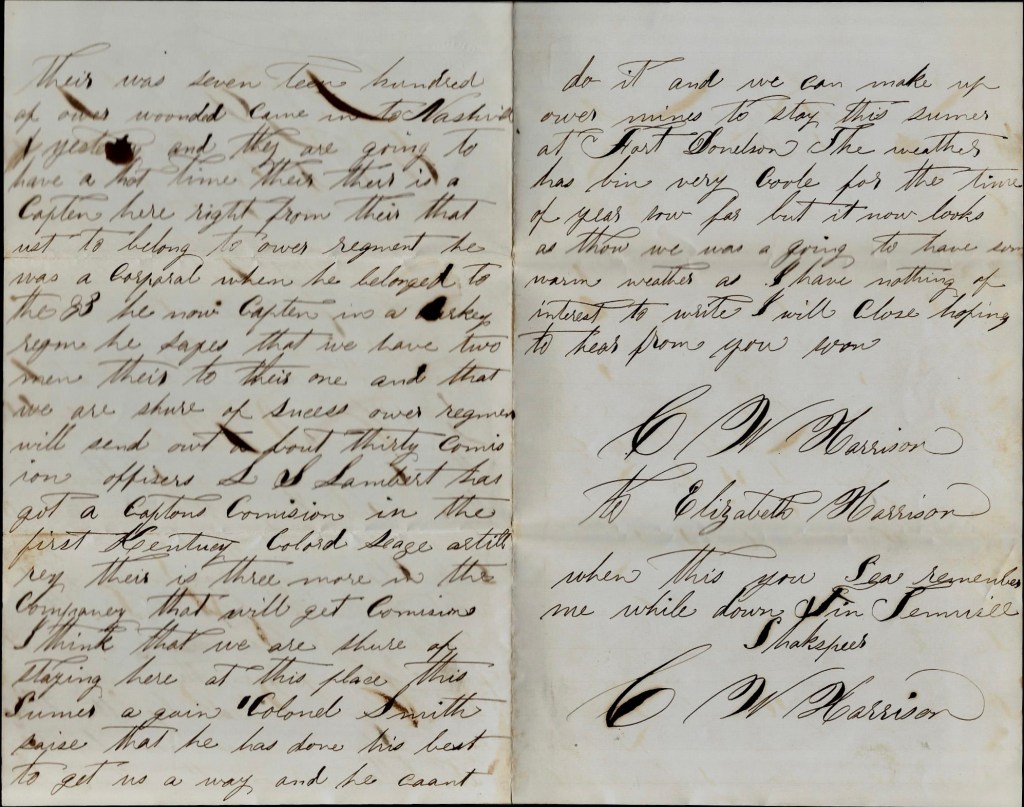 Their was seven teen hundred
of ower woonded came in to Nashvill
yesterday and they are going to
have a hot time their their is a
Capten here right from their that
ust to belong to ower regment he
was a Corparal when he belonged to
the 83 he now Capten in a darkey
regm he sayes that we have two
men their to their one and that
we are shure of sucess ower regmen
will send out a bout thirty Comis
ion offisers L S Lambert has
got a Captons Comision in the
first Kentucy Colord seage artill
rey their is three more in the
Companey that will get Comisions
I think that we are shure of
staying here at this place this
Sumer a gain Colonel Smith
saise that he has done his best
to get us a way and he caant
do it and we can make up
ower mines to stay this sumer
at Fort Donelson The weather
has bin very Coole for the time
of year sow far but it now looks
as thow we was a going to have som
warm weather as I have nothing of
interest to write I will Close hoping
to hear from you soon
C W Harrison
to Elizabeth Harrison
when this you Sea remember
me while down in
Shakspeer
C W Harrison